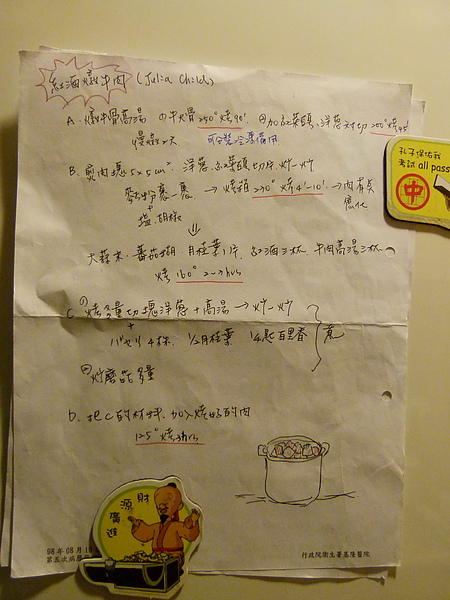 紅酒燉牛肉 (Julia Child)
A. 燉牛骨高湯 ①牛大骨 250° 烤90' ②加紅蘿頭、洋蔥對切 200° 烤45'
慢燉2天 可分裝冷凍備用
B. 煎肉塊5x5cm² 洋蔥、紅蘿頭切片、炒一炒
麵粉裹一裹 → 烤箱 230° 烤4'-10' → 肉有点焦化
+
塩、胡椒
⇓
大蒜末、番茄糊 月桂葉1片、紅酒三杯 牛肉高湯三杯
烤 160° 2~3hrs
C ① 烤多量切塊洋蔥+高湯 → 炒一炒
+
パセリ4株、1/2月桂葉 1/4匙百里香
煮
② 炒磨菇多量
D. 把C的材料、加入燒好的肉
125° 烤3hrs
孔子保佑我
考試 all pass
中
財源廣進
98年08月1
第五次病
行政院衛生署基隆醫院